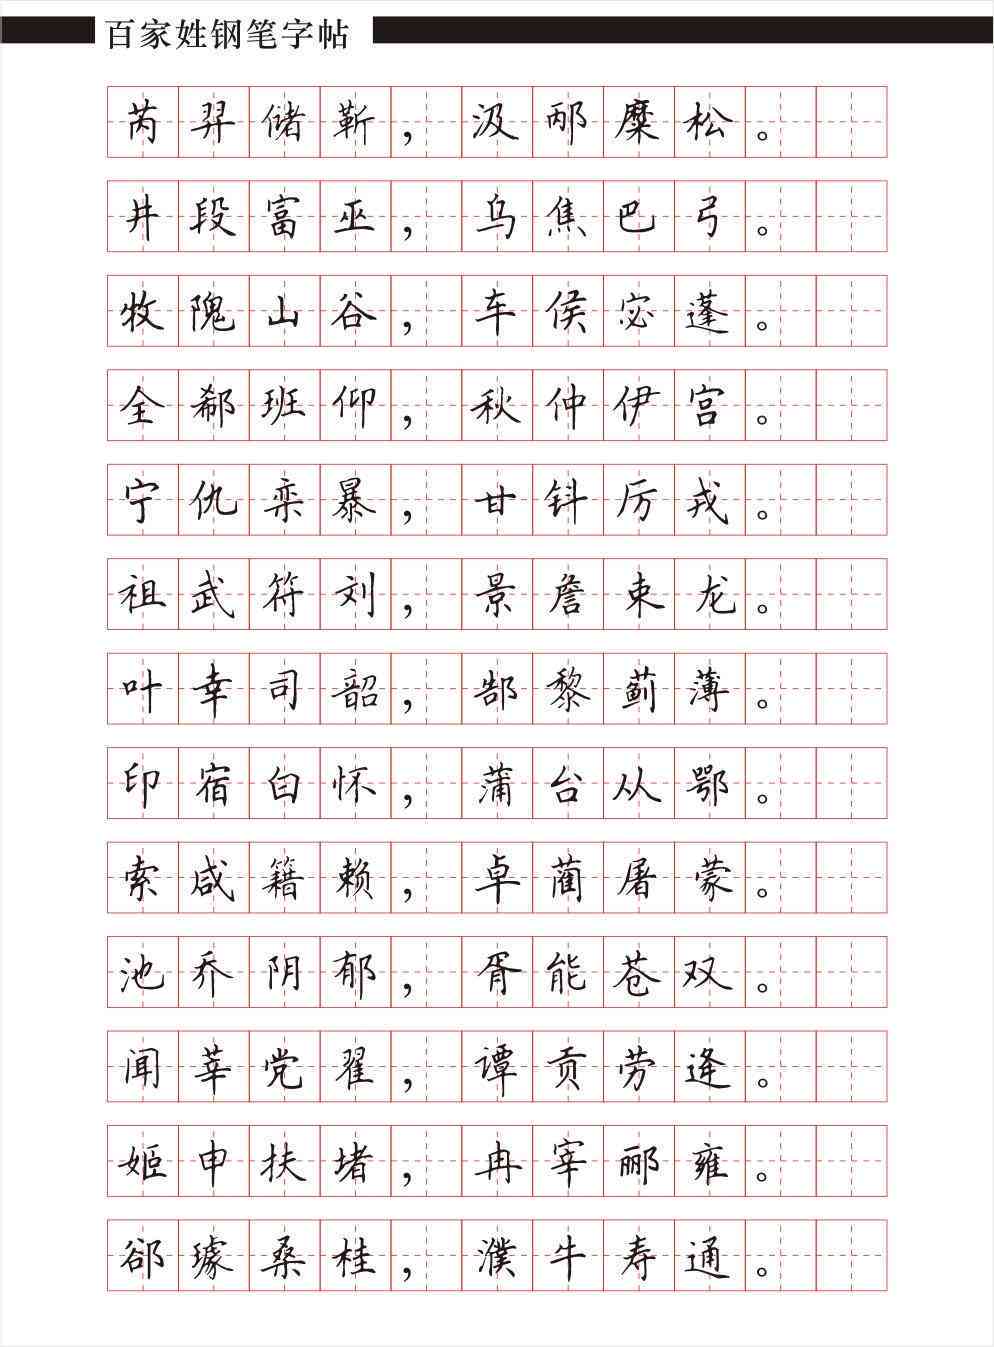 百家姓钢笔字帖
芮羿储靳，汲邴糜松。
井段富巫，乌焦巴弓。
牧隗山谷，车侯宓蓬。
全郗班仰，秋仲伊宫。
宁仇栾暴，甘钭厉戎。
祖武符刘，景詹束龙。
叶幸司韶，郜黎蓟薄。
印宿白怀，蒲台从鄂。
索咸籍赖，卓蔺屠蒙。
池乔阴郁，胥能苍双。
闻莘党翟，谭贡劳逄。
姬申扶堵，冉宰郦雍。
郤璩桑桂，濮牛寿通。